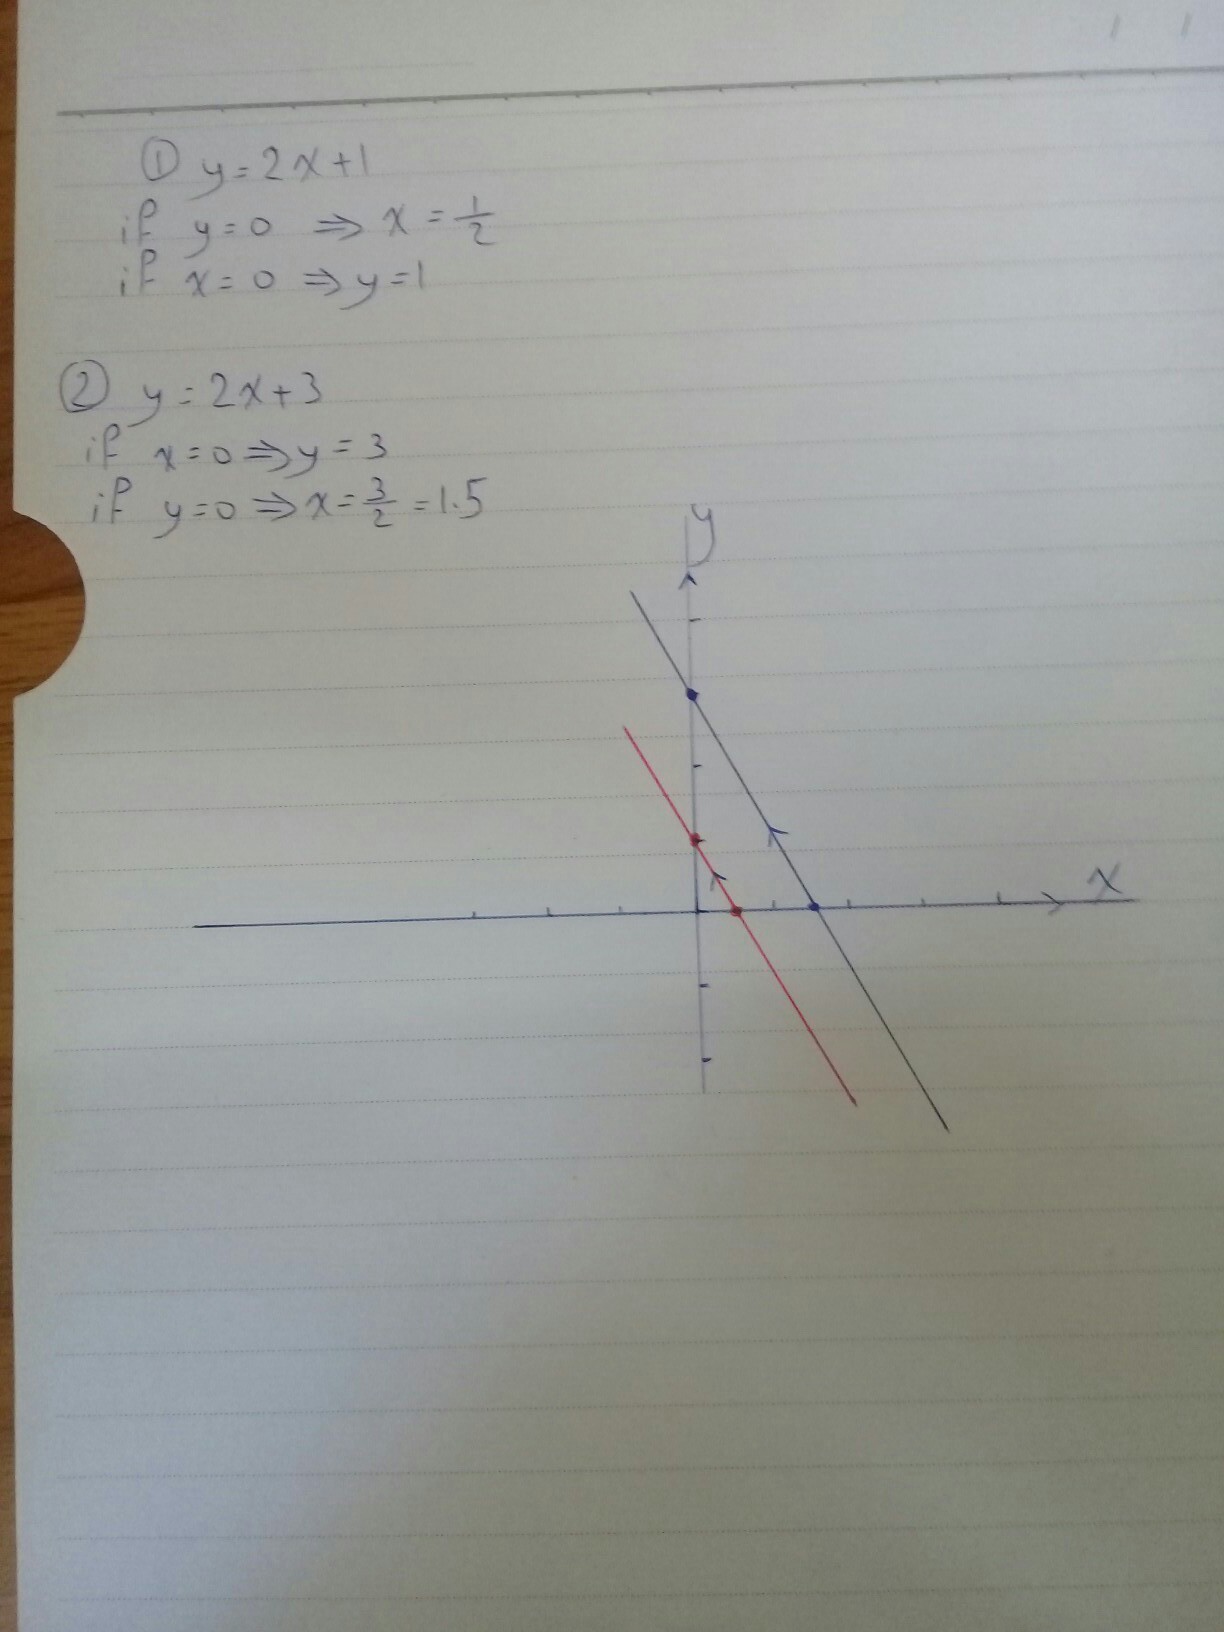 ① y=2x+1
if y=0 ⇒ x=1/2
if x=0 ⇒ y=1
② y=2x+3
if x=0 ⇒ y=3
if y=0 ⇒ x=3/2=1.5
y
x